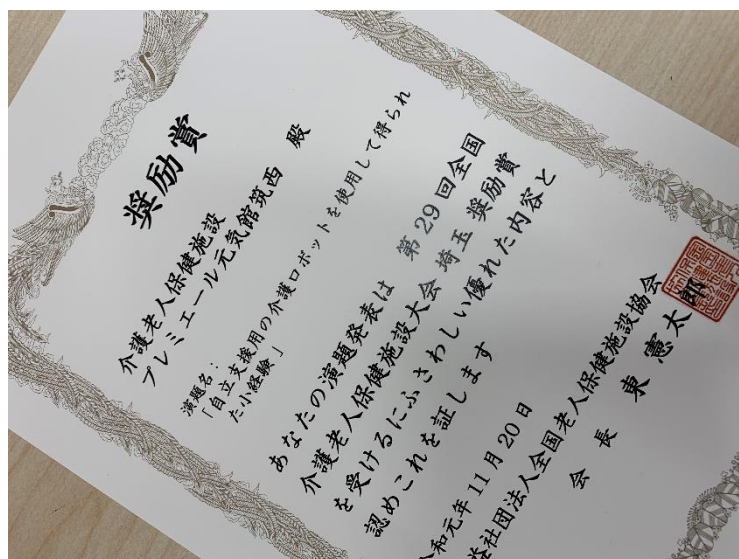 奨励賞
介護老人保健施設
プレミエール元気館筑西 殿
演題名：
「自立支援用の介護ロボットを使用して得られ
た小経験」
あなたの演題発表は 第29回全国
介護老人保健施設大会 埼玉 奨励賞
を受けるにふさわしい優れた内容と
認めこれを証します
令和元年11月20日
益社団法人全国老人保健施設協会
会長 東憲太郎